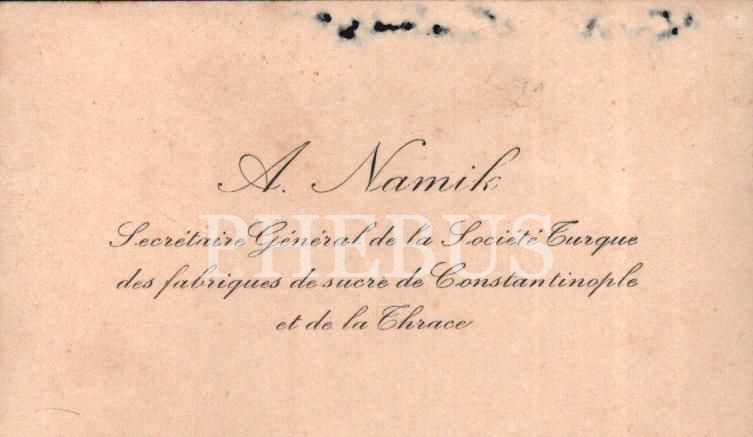 A. Namik
Secrétaire Général de la Société Turque
PHEBUS
des fabriques de sucre de Constantinople
et de la Thrace